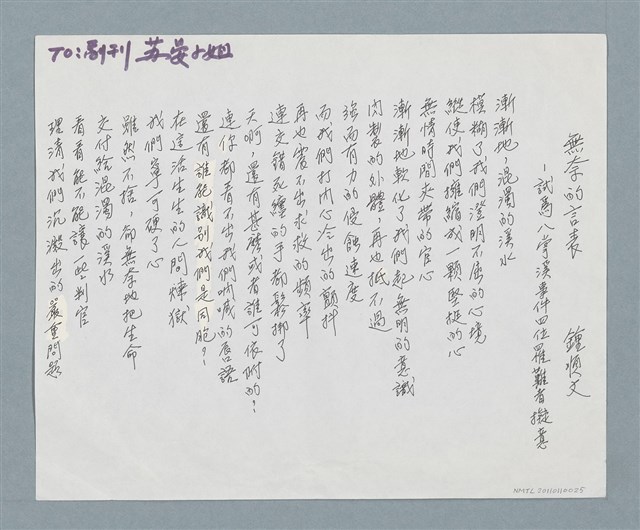 TO:副刊 苏晏小姐
無奈的言衷
鍾順文
-試寫八掌溪事件四位罹難者擬意
漸漸地,混濁的溪水
模糊了我們澄明不屈的心境
縱使我們擁縮成一顆堅挺的心
無情時間夾帶的官心
漸漸地軟化了我們起無明的意識
肉製的外體,再也抵不過
強而有力的侵蝕速度
而我們打內心冷出的顫抖
再也震不出求救的頻率
連交錯死纏的手都鬆綁了
天啊,還有甚麼或者誰可依附的?
連你都看不出我們吶喊的唇語
還有誰能識別我們是同胞?
在這活生生的人間煉獄
我們寧可硬了心
雖然不捨,卻無奈地把生命
交付給混濁的溪水
看看能不能讓一些判官
理清我們沉澱出的嚴重問題
NMTL 20110110025